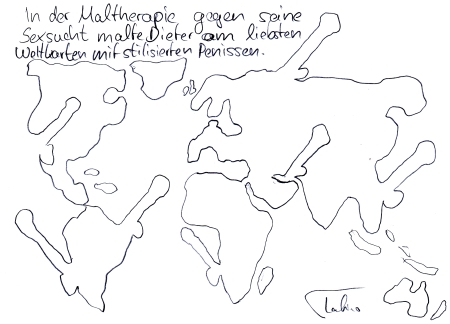 In der Maltherapie gegen seine
Sexsucht malte Dieter am liebsten
Weltkarten mit stilisierten Penissen.